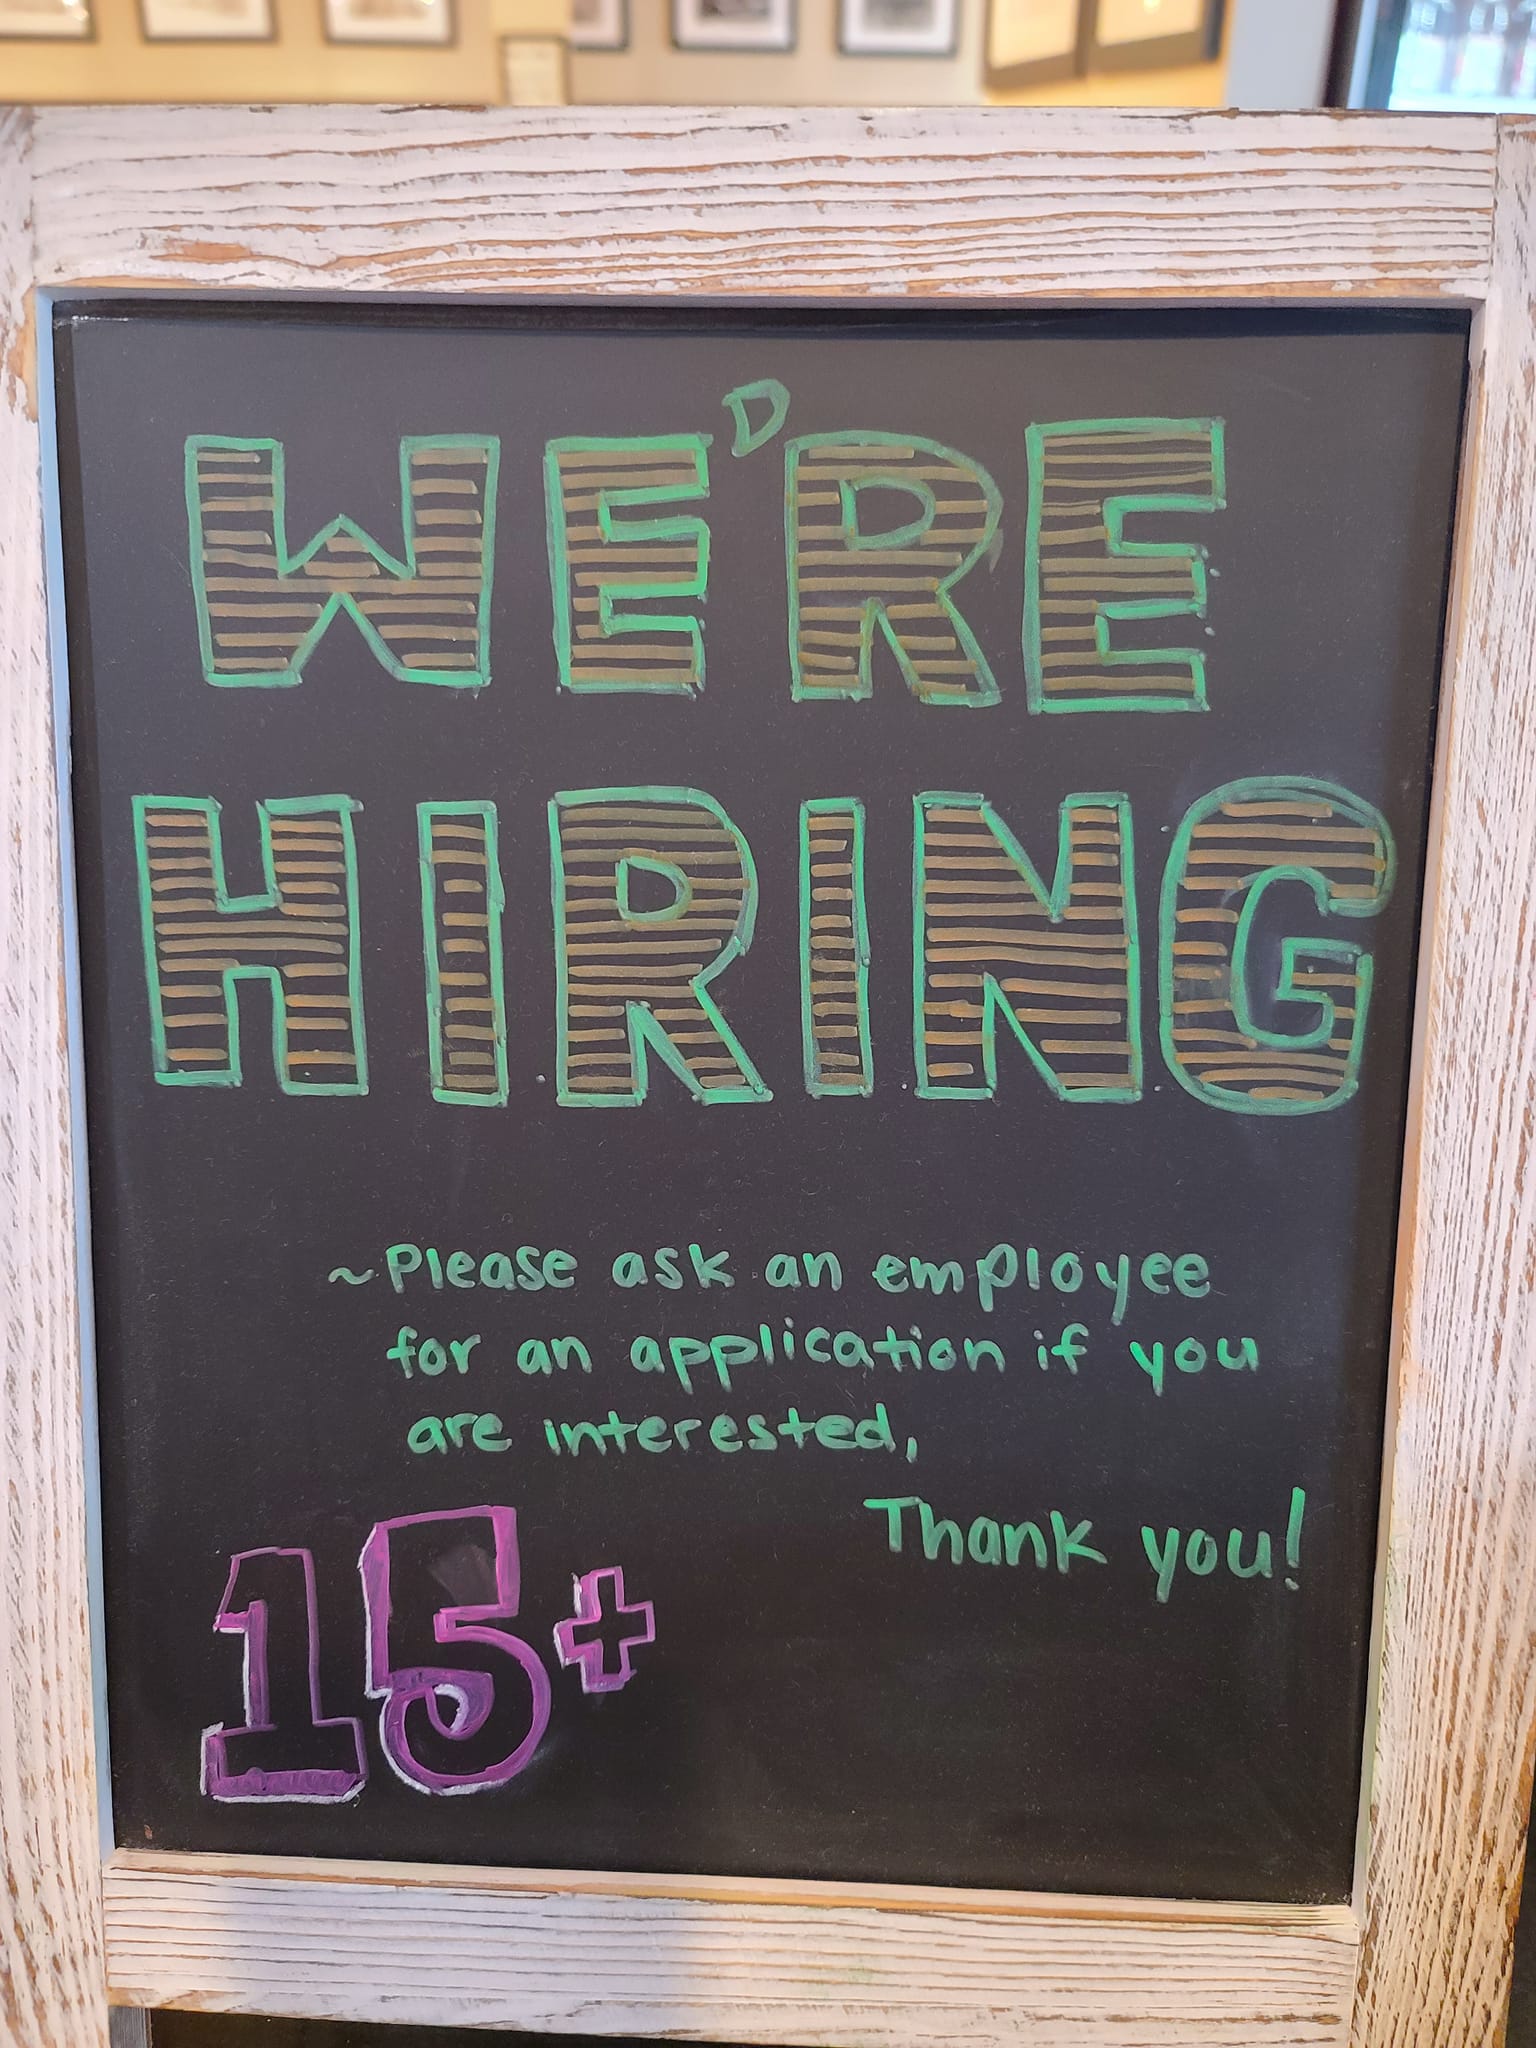 WE'RE
HIRING
~Please ask an employee
for an application if you
are interested,
Thank you!
15+